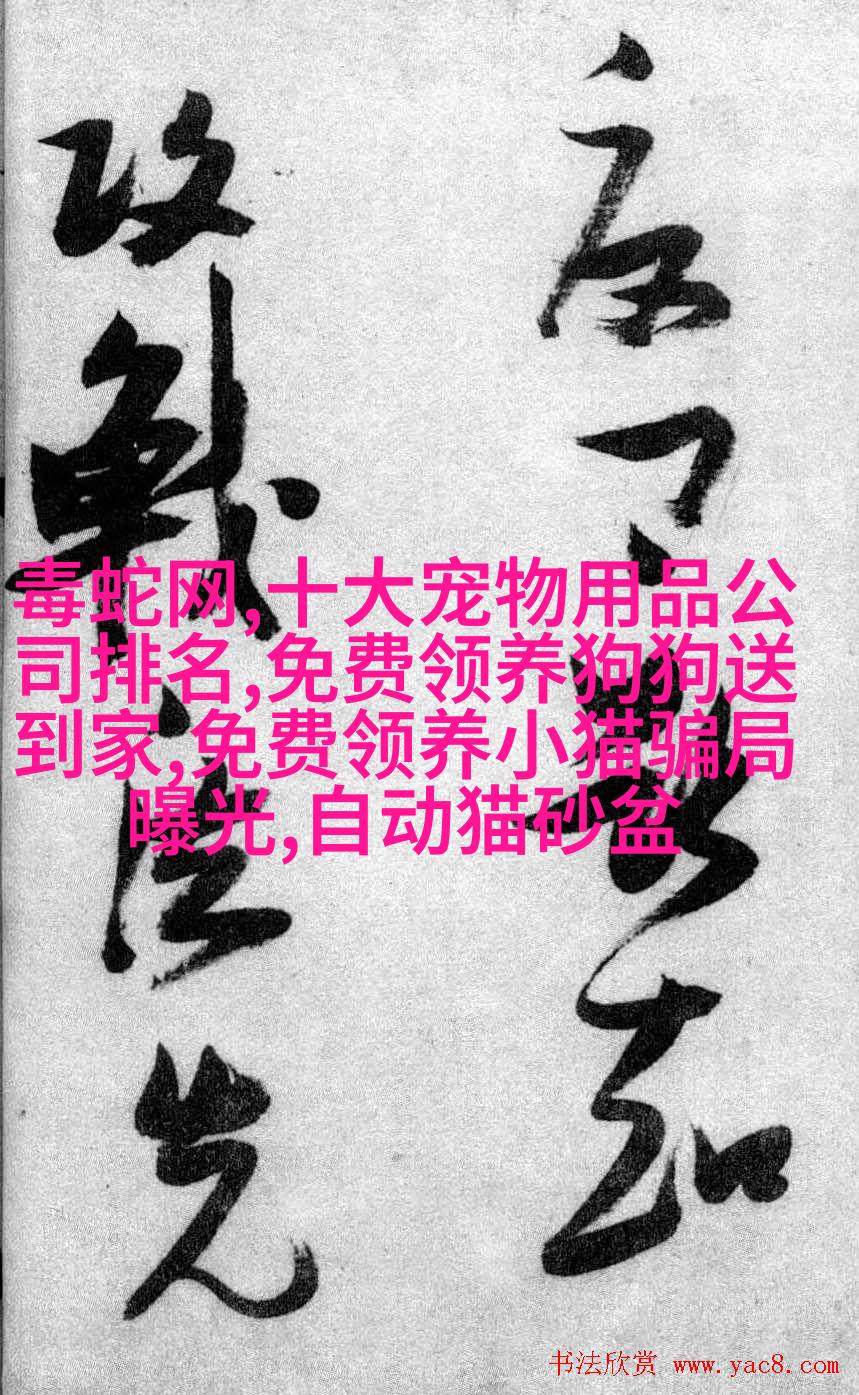 知
攻戰先
毒蛇网,十大宠物用品公
司排名,免费领养狗狗送
到家,免费领养小猫骗局
曝光,自动猫砂盆
书法欣赏 www.yac8.com